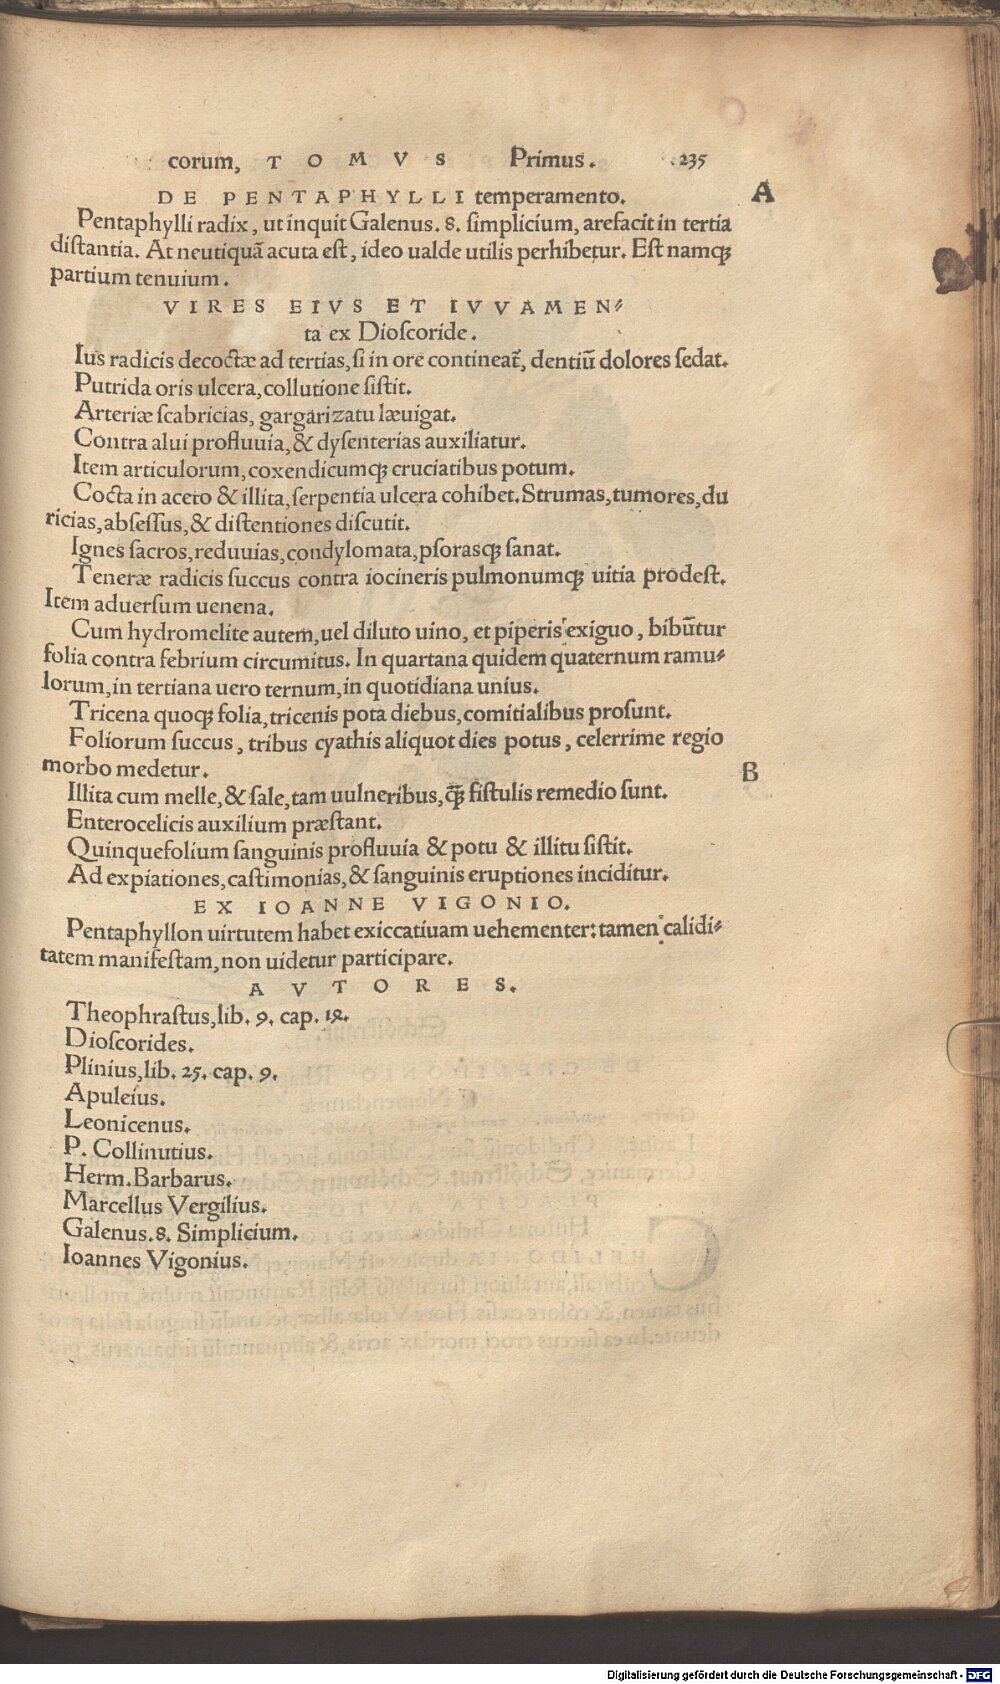 corum, TOMVS Primus. 235
DE PENTAPHYLLI temperamento. A
Pentaphylli radix, ut inquit Galenus. 8. simplicium, arefacit in tertia
distantia. At neutiquā acuta est, ideo ualde utilis perhibetur. Est namq;
partium tenuium.
VIRES EIVS ET IVVAMEN⸗
ta ex Dioscoride.
Ius radicis decoctæ ad tertias, si in ore contineat̃, dentiũ dolores sedat.
Putrida oris ulcera, collutione sistit.
Arteriæ scabricias, gargarizatu læuigat.
Contra alui profluuia, & dysenterias auxiliatur.
Item articulorum, coxendicumq; cruciatibus potum.
Cocta in aceto & illita, serpentia ulcera cohibet. Strumas, tumores, du
ricias, absessus, & distentiones discutit.
Ignes sacros, reduuias, condylomata, psorasq; sanat.
Teneræ radicis succus contra iocineris pulmonumq; uitia prodest.
Item aduersum uenena.
Cum hydromelite autem, uel diluto uino, et piperis exiguo, bibũtur
folia contra febrium circumitus. In quartana quidem quaternum ramu⸗
lorum, in tertiana uero ternum, in quotidiana unius.
Tricena quoq; folia, tricenis pota diebus, comitialibus prosunt.
Foliorum succus, tribus cyathis aliquot dies potus, celerrime regio
morbo medetur. B
Illita cum melle, & sale, tam uulneribus, q̃ fistulis remedio sunt.
Enterocelicis auxilium præstant.
Quinquefolium sanguinis profluuia & potu & illitu sistit.
Ad expiationes, castimonias, & sanguinis eruptiones inciditur.
EX IOANNE VIGONIO.
Pentaphyllon uirtutem habet exiccatiuam uehementer: tamen calidi⸗
tatem manifestam, non uidetur participare.
AVTORES.
Theophrastus, lib. 9. cap. 12.
Dioscorides.
Plinius, lib. 25. cap. 9.
Apuleius.
Leonicenus.
P. Collinutius.
Herm. Barbarus.
Marcellus Vergilius.
Galenus. 8. Simplicium.
Ioannes Vigonius.
Digitalisierung gefördert durch die Deutsche Forschungsgemeinschaft - DFG